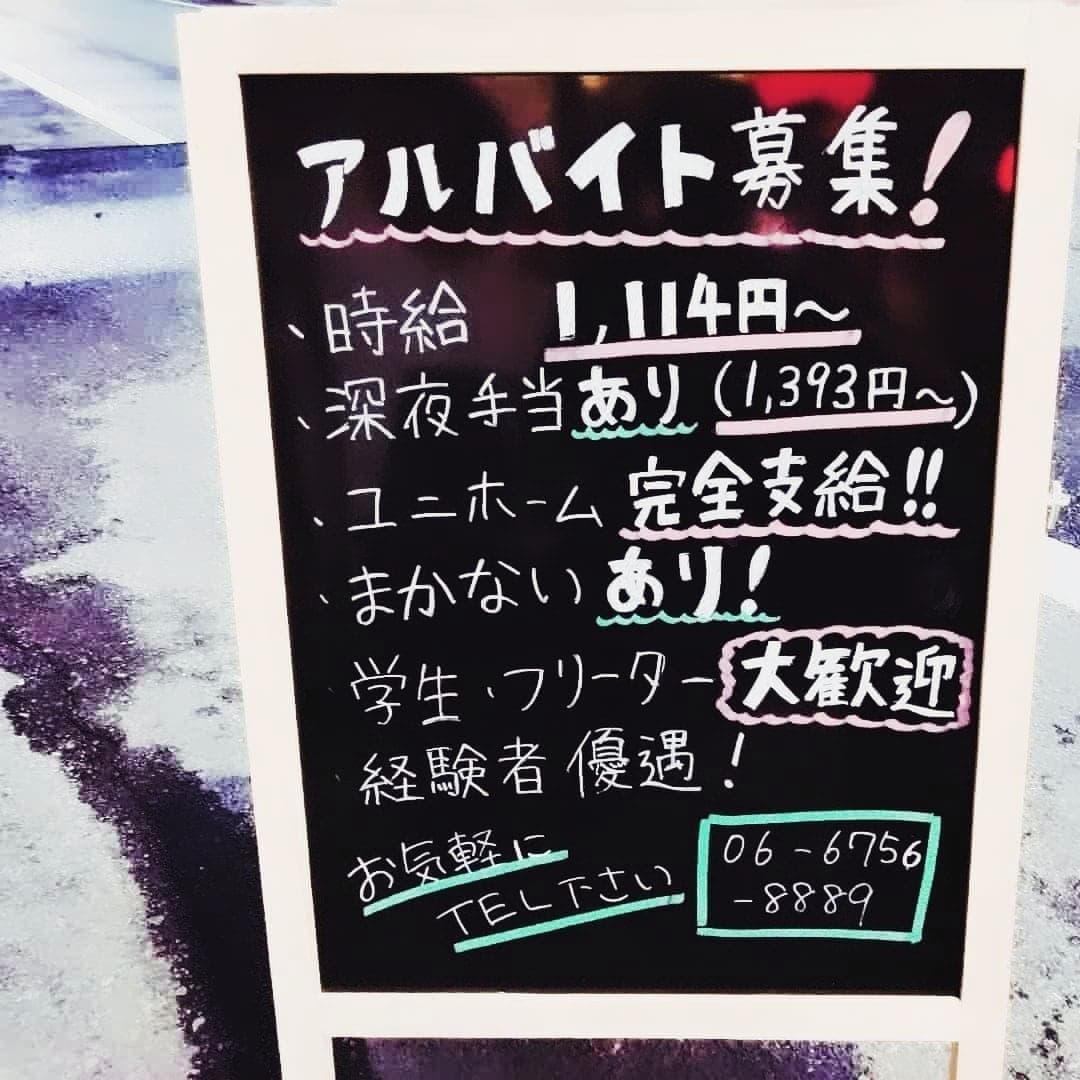 アルバイト募集!
、時給 1,114円〜
、深夜手当あり(1,393円〜)
、ユニホーム 完全支給!!
、まかない あり!
学生・フリーター 大歓迎
経験者 優遇!
お気軽に
TEL下さい
06-6756
-8889